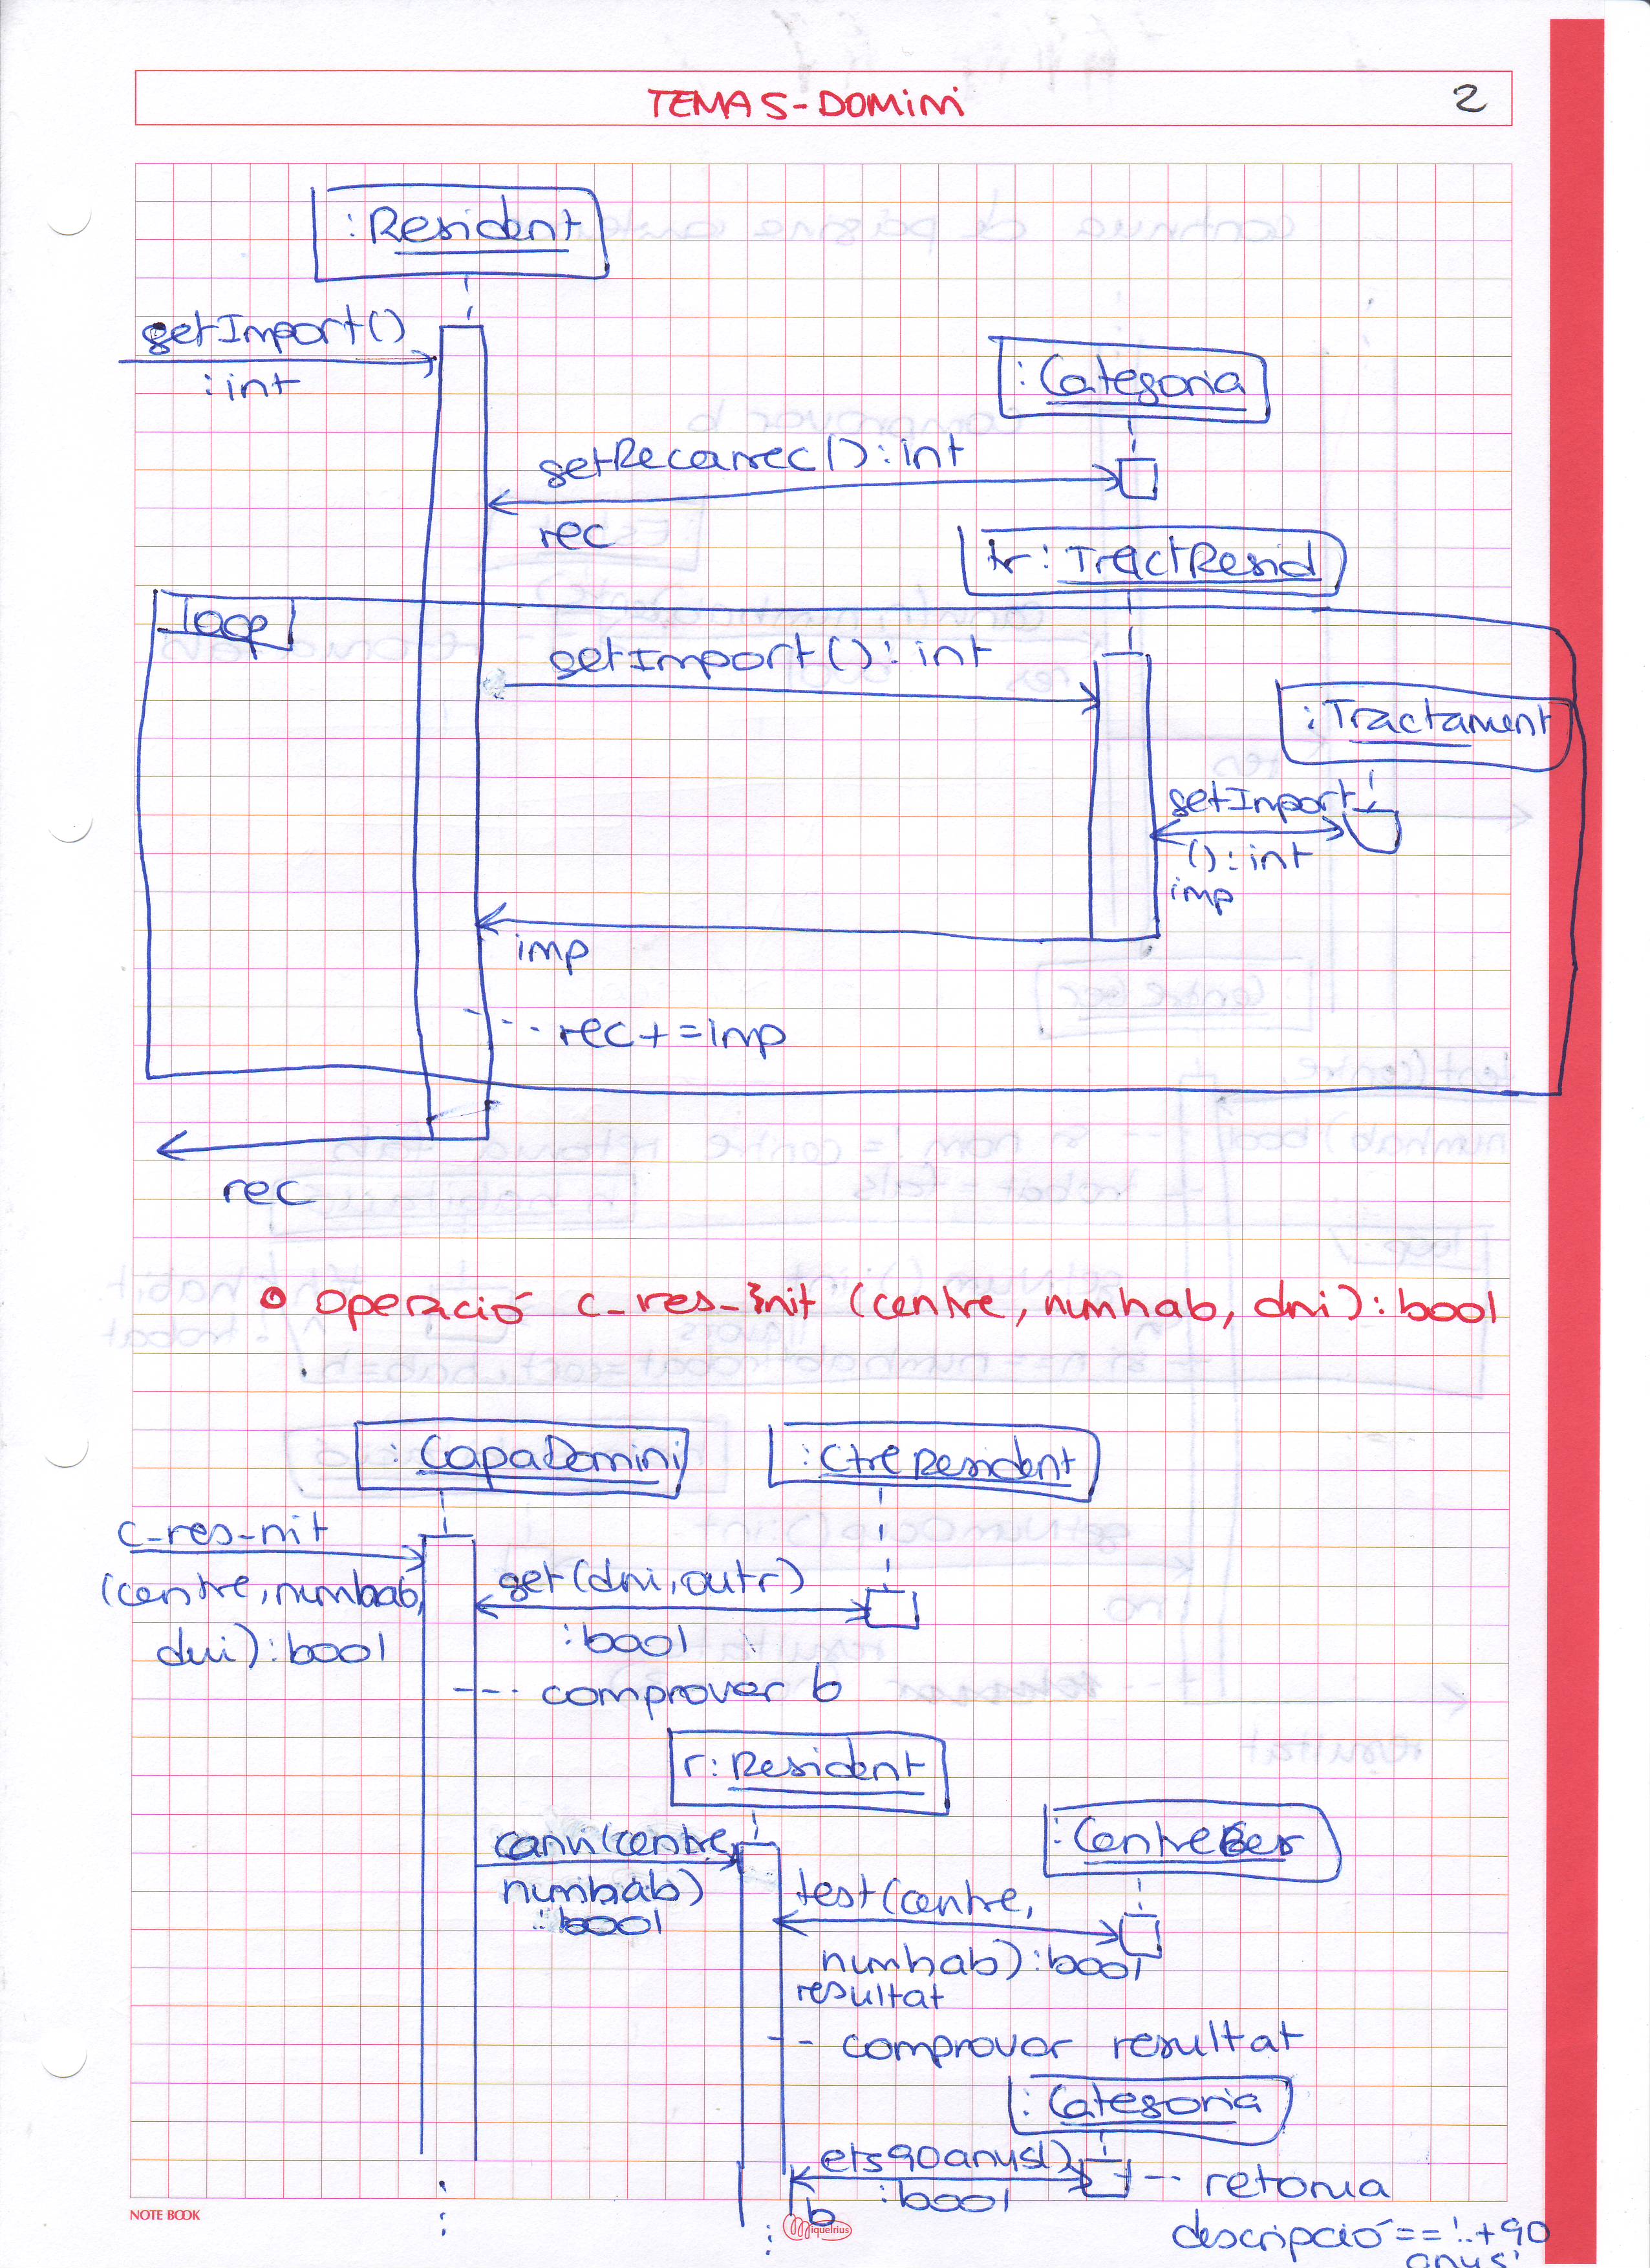 TEMA 5 - DOMINI
2
:Resident
getImport()
:int
:Categoria
getRecarrec():int
rec
tr:TractResid
loop
getImport():int
:Tractament
getImport
():int
imp
imp
rec+=imp
rec
Operació c_res_init (centre, numhab, dni): bool
:CapaDomini
:CtreResident
c_res_nit
(centre, numhab,
dni):bool
get(dni, out r)
:bool
comprovar b
r:Resident
canvi(centre,
numhab)
:bool
:CentreGer
test(centre,
numhab):bool
resultat
comprovar resultat
:Categoria
ets90anys()
:bool
b
retorna
descripció=='+90
anys'
NOTE BOOK
Miquelrius